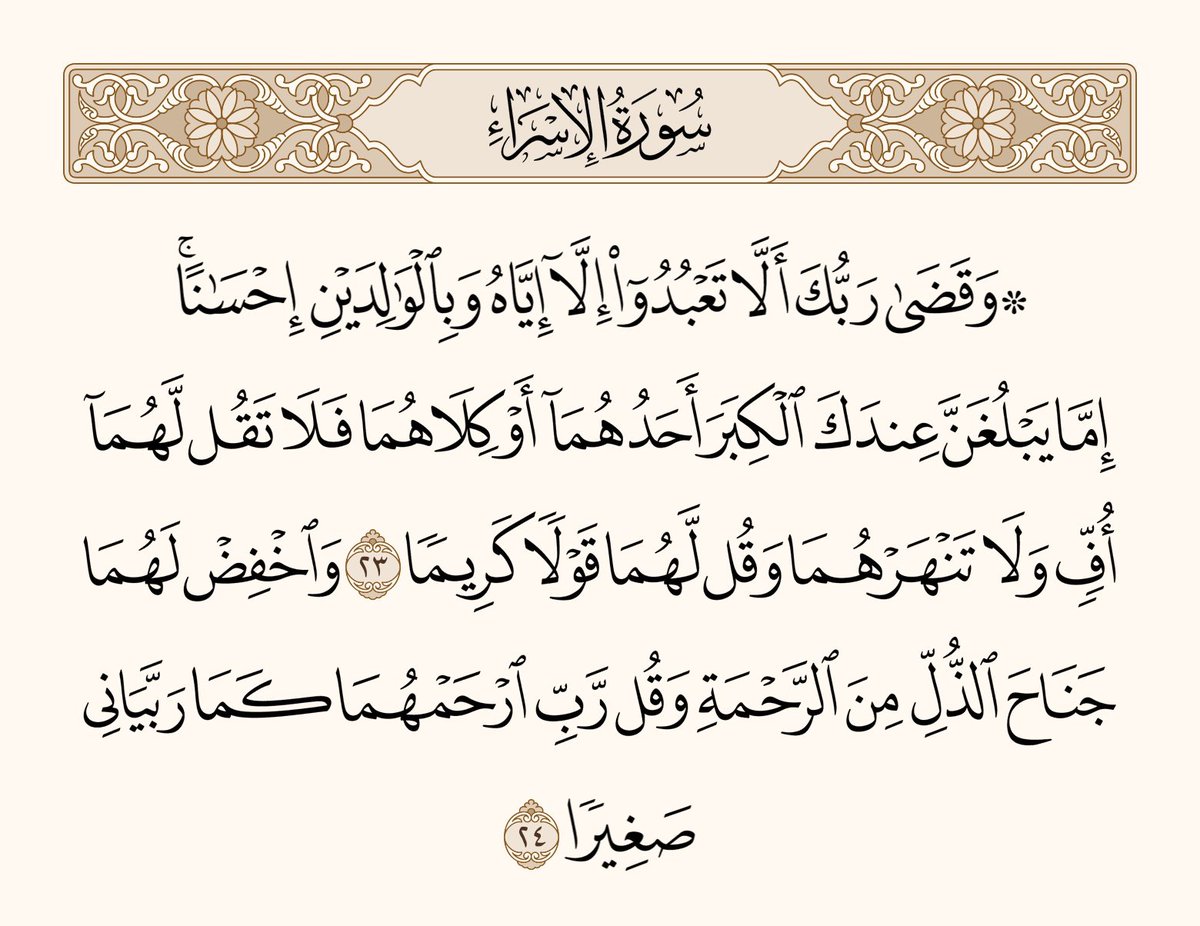 سُورَةُ الإِسْرَاءِ
۞ وَقَضَىٰ رَبُّكَ أَلَّا تَعْبُدُوٓا۟ إِلَّآ إِيَّاهُ وَبِٱلْوَٰلِدَيْنِ إِحْسَـٰنًا ۚ
إِمَّا يَبْلُغَنَّ عِندَكَ ٱلْكِبَرَ أَحَدُهُمَآ أَوْ كِلَاهُمَا فَلَا تَقُل لَّهُمَآ
أُفٍّ وَلَا تَنْهَرْهُمَا وَقُل لَّهُمَا قَوْلًا كَرِيمًا ٢٣ وَٱخْفِضْ لَهُمَا
جَنَاحَ ٱلذُّلِّ مِنَ ٱلرَّحْمَةِ وَقُل رَّبِّ ٱرْحَمْهُمَا كَمَا رَبَّيَانِى
صَغِيرًا ٢٤